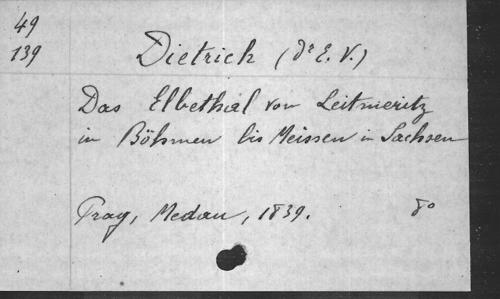 49
139
Dietrich (Dr E. V.)
Das Elbethal von Leitmeritz
in Böhmen bis Meissen in Sachsen
Prag, Medau, 1839. 8o